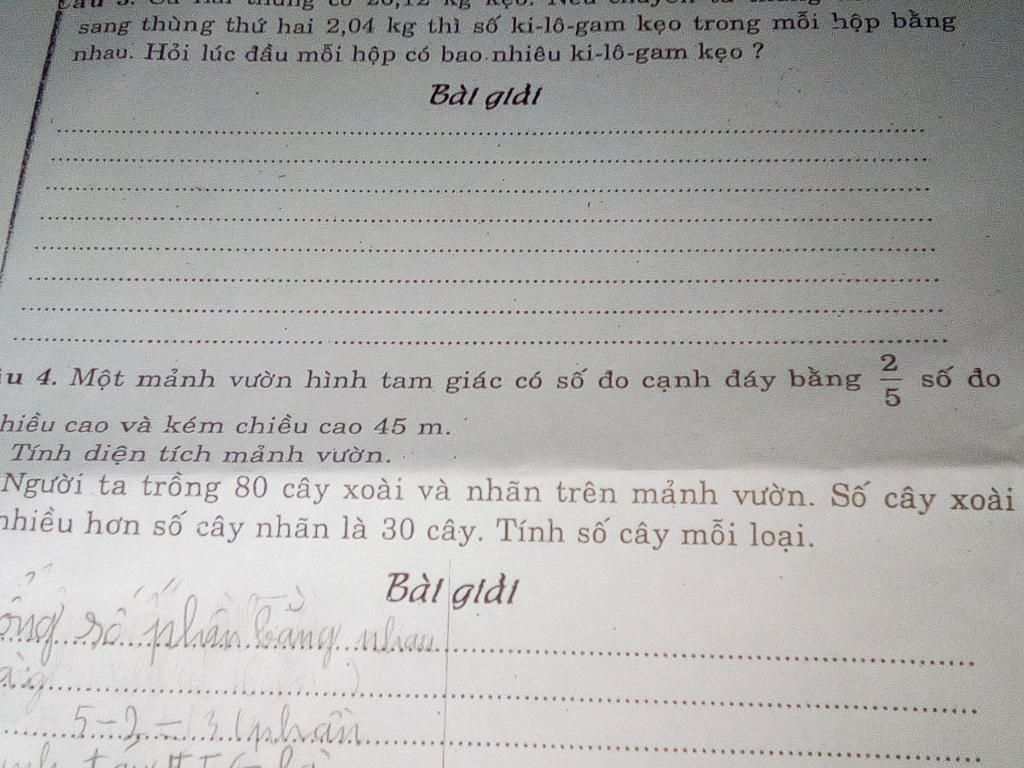 sang thùng thứ hai 2,04 kg thì số ki-lô-gam kẹo trong mỗi hộp bằng
nhau. Hỏi lúc đầu mỗi hộp có bao nhiêu ki-lô-gam kẹo ?
Bài giải
4. Một mảnh vườn hình tam giác có số đo cạnh đáy bằng 2/5 số đo
hiều cao và kém chiều cao 45 m.
Tính diện tích mảnh vườn.
Người ta trồng 80 cây xoài và nhãn trên mảnh vườn. Số cây xoài
nhiều hơn số cây nhãn là 30 cây. Tính số cây mỗi loại.
Bài giải
số phần bằng nhau
5 - 2 = 3 (phần